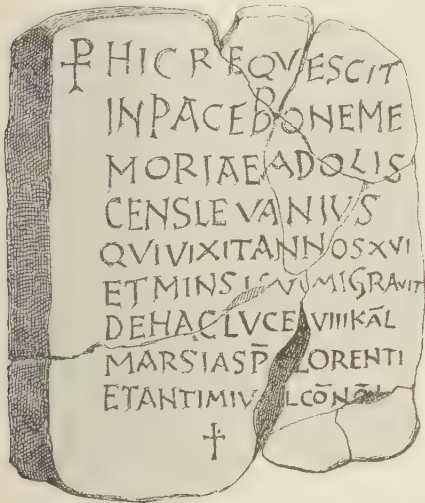 ⳨ HIC REQVESCIT
IN PACE BONE ME
MORIAE ADOLIS
CENS LEVANIVS
QVI VIXIT ANNOS XVI
ET MINS MIGRAVIT
DE HAC LVCE VIII KAL
MARSIAS P LORENTI
ET ANTIMI